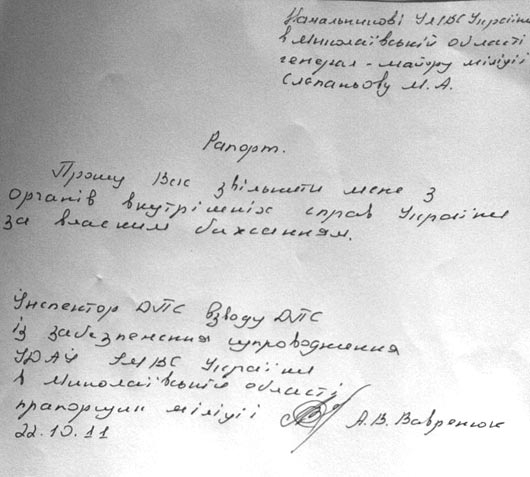 Начальникові УМВС України
в Миколаївській області
генерал-майору міліції
Слєпаньову М. А.
Рапорт.
Прошу Вас звільнити мене з
органів внутрішніх справ України
за власним бажанням.
Інспектор ДПС взводу ДПС
із забезпечення супроводження
УДАІ УМВС України
в Миколаївській області
прапорщик міліції
А.В. Вавренюк
22.10.11